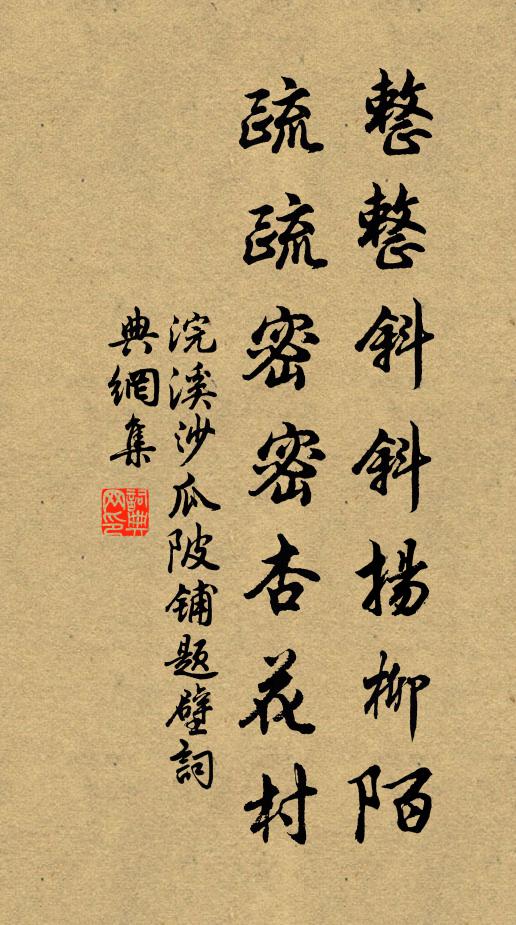 整整斜斜揚柳陌
疏疏密密杏花村
浣溪沙瓜陂鋪題壁詞
典網集
詞典網印